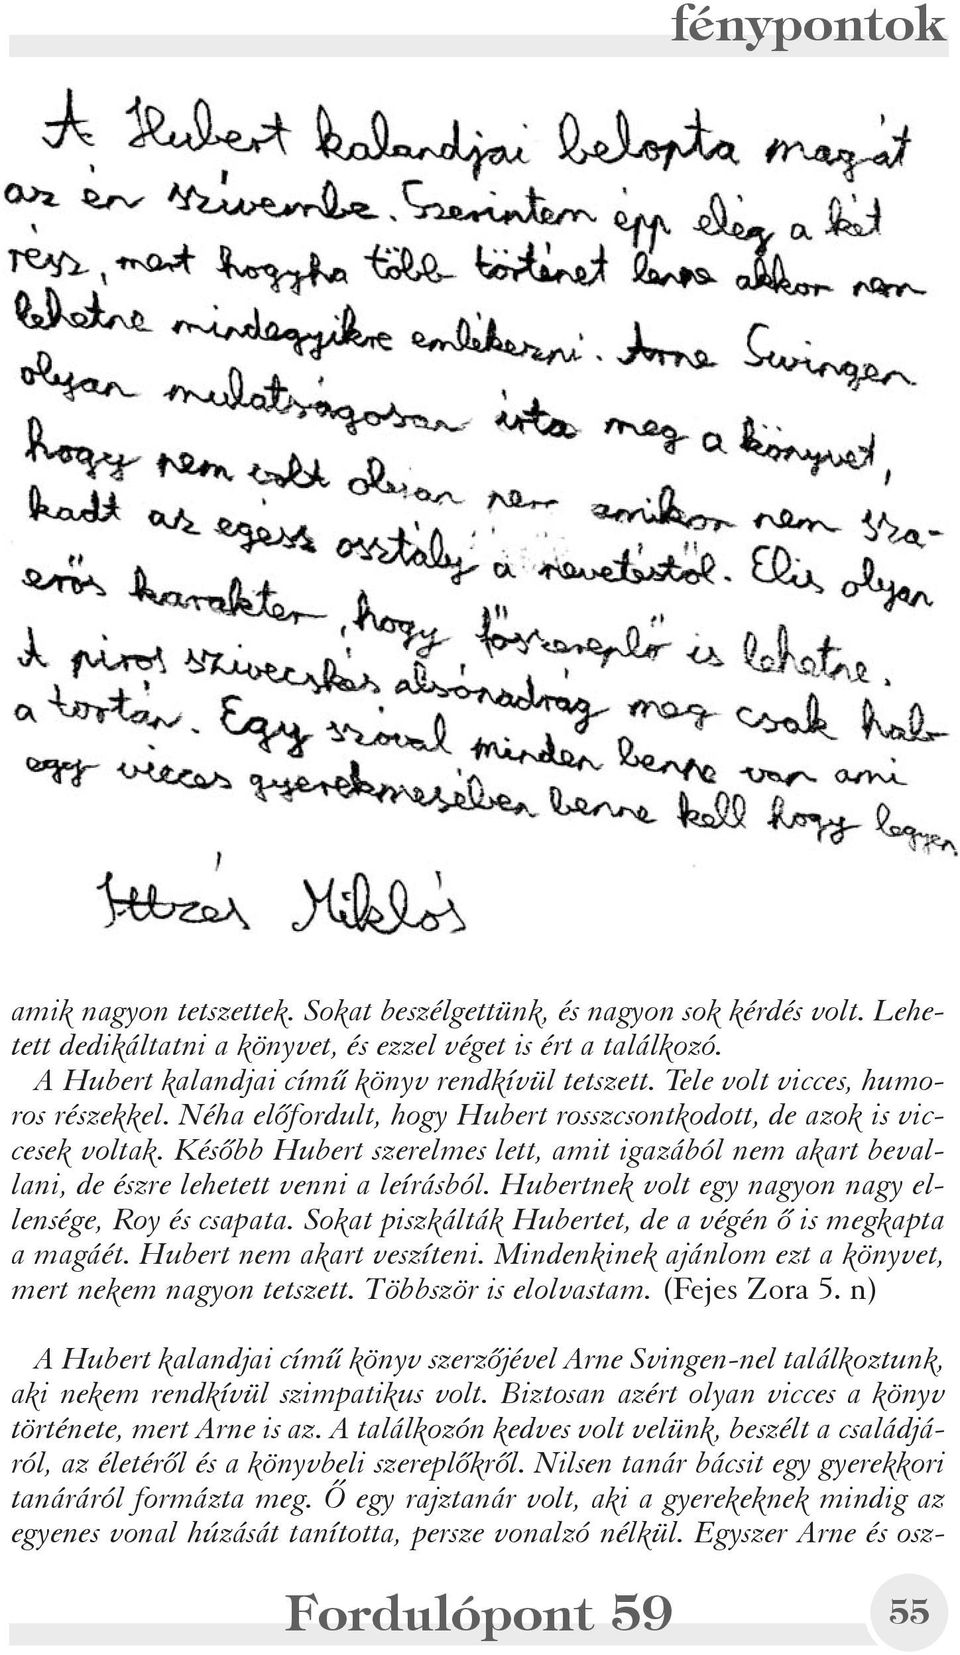 fénypontok
A Hubert kalandjai belopta magát
az én szívembe. Szerintem épp elég a két
rész, mert hogyha több történet lenne akkor nem
lehetne mindegyikre emlékezni. Arne Swingen
olyan mulatságosan írta meg a könyvet,
hogy nem volt olyan nem amikor nem sza-
kadt az egéss osztály a nevetéstől. Elis olyan
erős karakter, hogy főszereplő is lehetne.
A piros szivecskés alsónadrág meg csak hab
a tortán. Egy szóval minden benne van ami
egy vicces gyerekmesében benne kell hogy legyen.
Ittzés Miklós
amik nagyon tetszettek. Sokat beszélgettünk, és nagyon sok kérdés volt. Lehe-
tett dedikáltatni a könyvet, és ezzel véget is ért a találkozó.
A Hubert kalandjai című könyv rendkívül tetszett. Tele volt vicces, humo-
ros részekkel. Néha előfordult, hogy Hubert rosszcsontkodott, de azok is vic-
cesek voltak. Később Hubert szerelmes lett, amit igazából nem akart beval-
lani, de észre lehetett venni a leírásból. Hubertnek volt egy nagyon nagy el-
lensége, Roy és csapata. Sokat piszkálták Hubertet, de a végén ő is megkapta
a magáét. Hubert nem akart veszíteni. Mindenkinek ajánlom ezt a könyvet,
mert nekem nagyon tetszett. Többször is elolvastam. (Fejes Zora 5. n)
A Hubert kalandjai című könyv szerzőjével Arne Svingen-nel találkoztunk,
aki nekem rendkívül szimpatikus volt. Biztosan azért olyan vicces a könyv
története, mert Arne is az. A találkozón kedves volt velünk, beszélt a családjá-
ról, az életéről és a könyvbeli szereplőkről. Nilsen tanár bácsit egy gyerekkori
tanáráról formázta meg. Ő egy rajztanár volt, aki a gyerekeknek mindig az
egyenes vonal húzását tanította, persze vonalzó nélkül. Egyszer Arne és osz-
Fordulópont 59
55